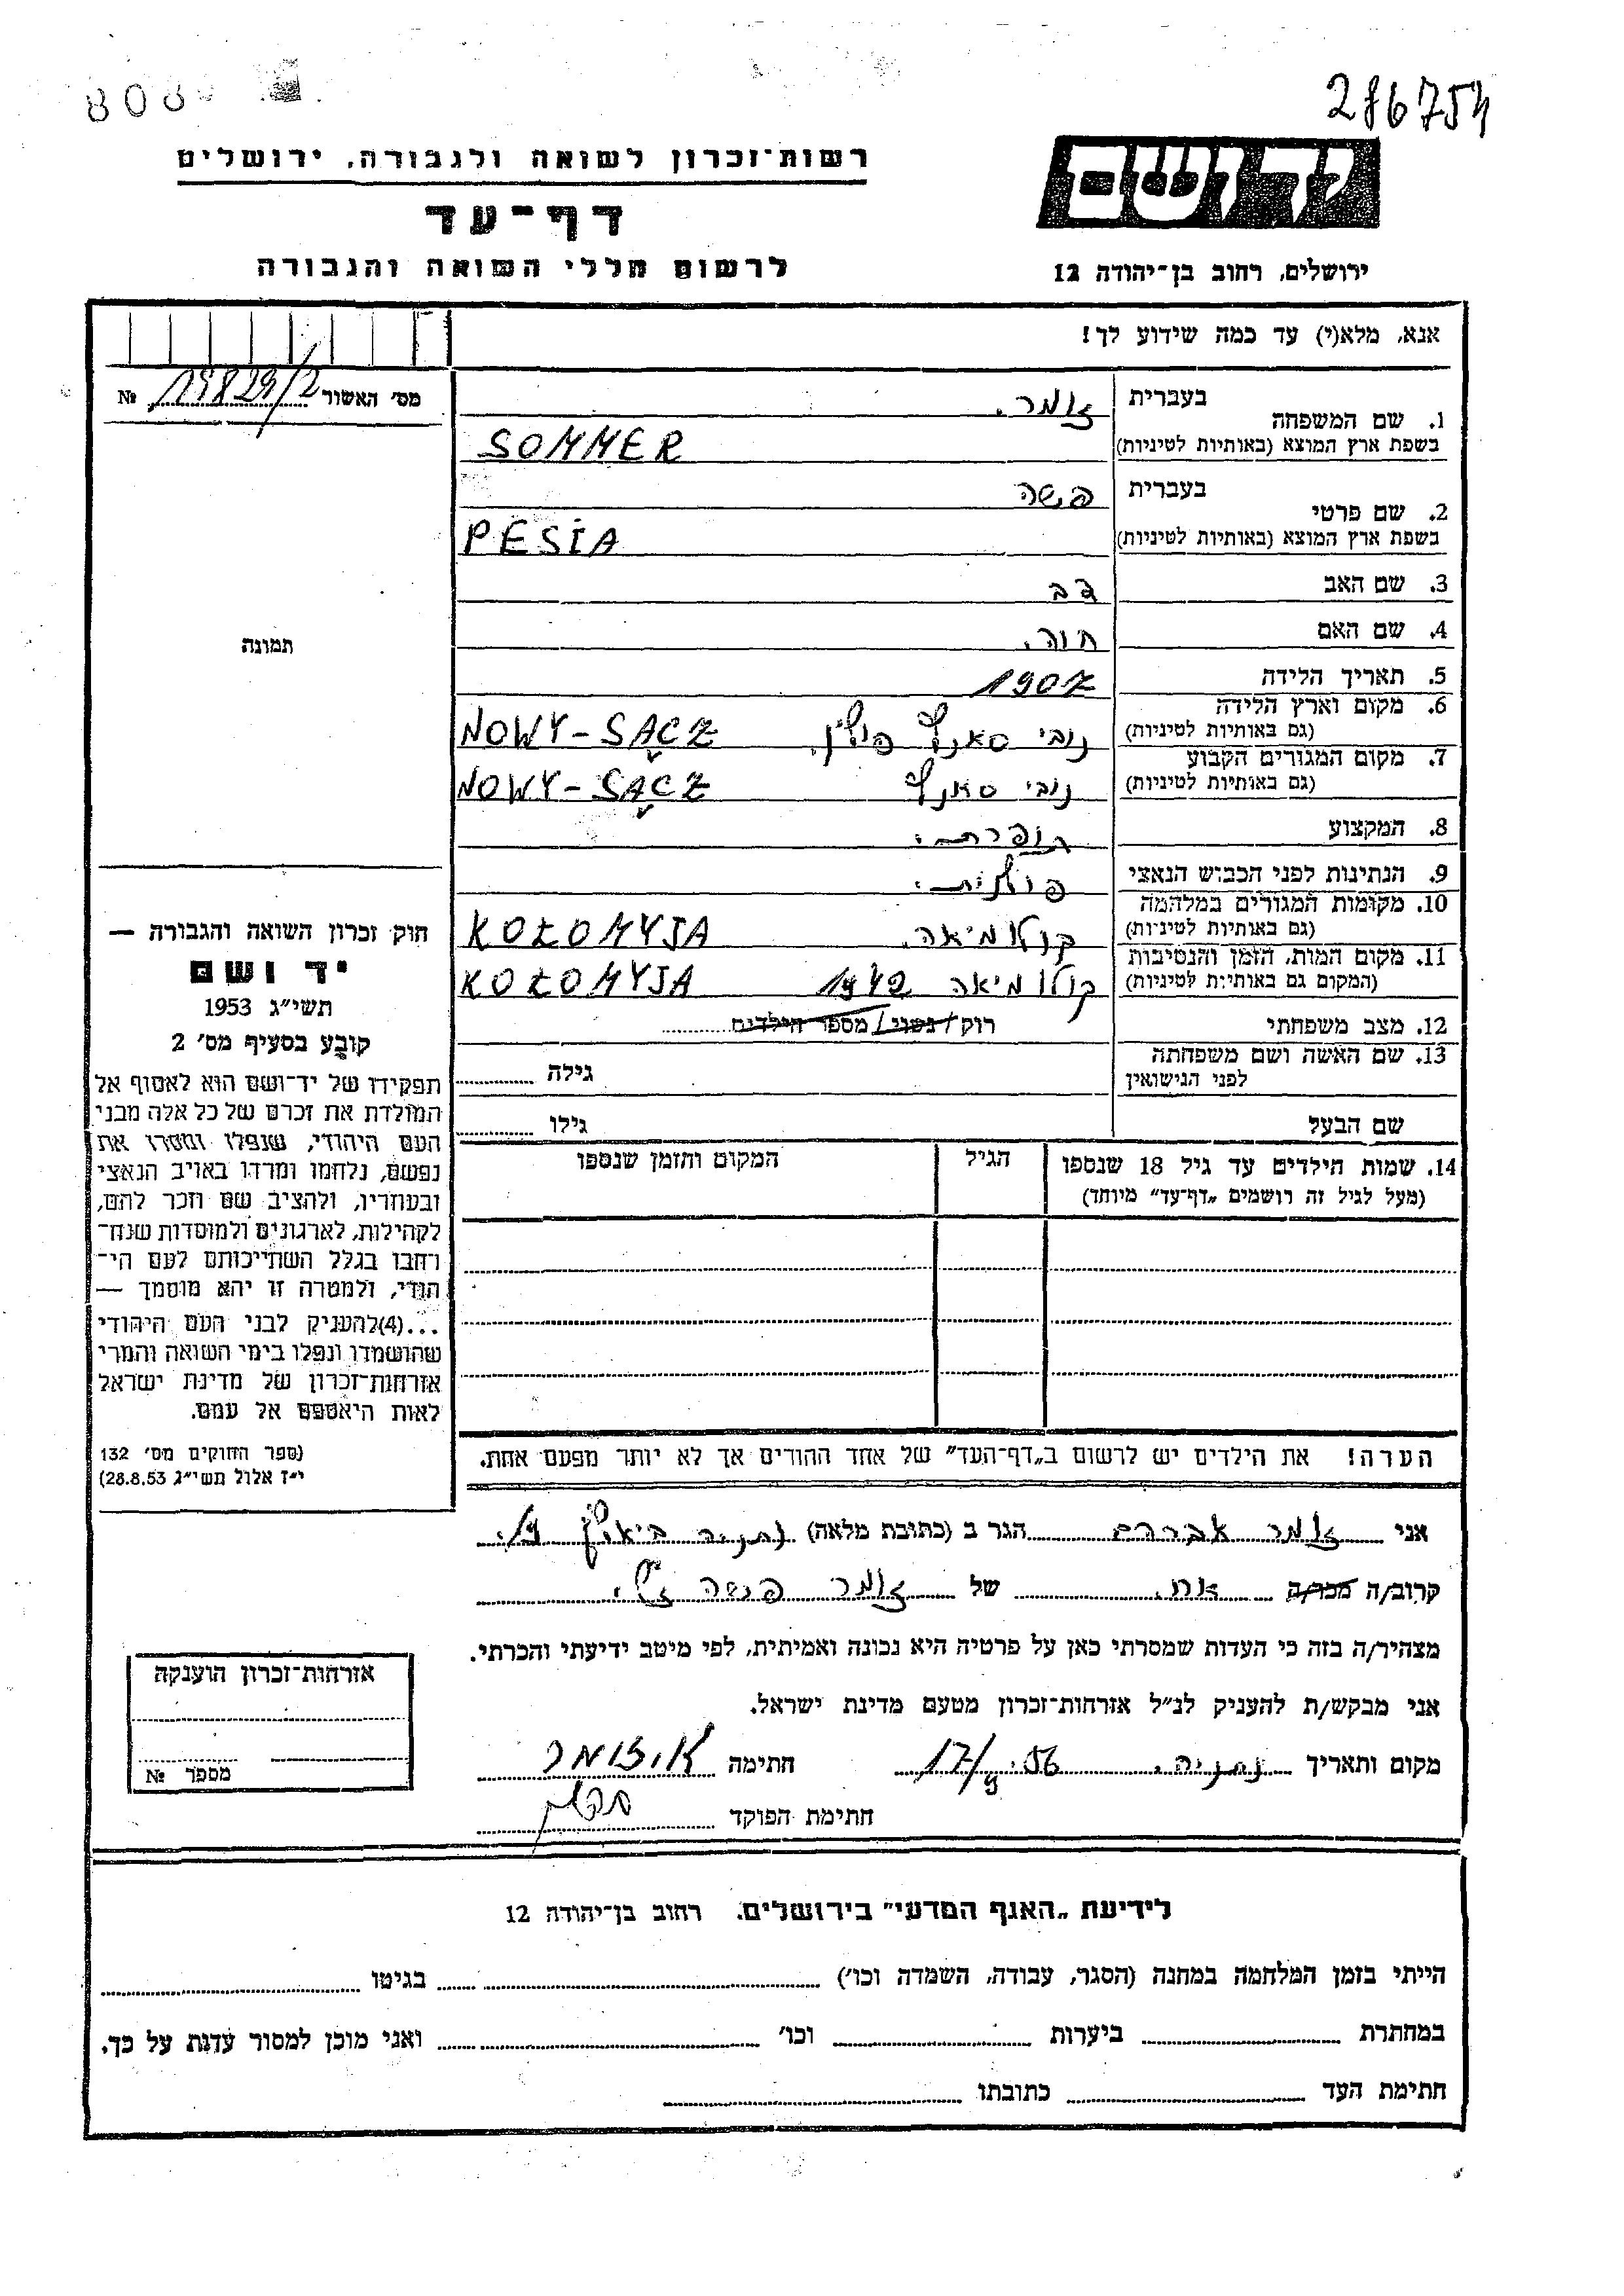 286754
808
רשות־זכרון לשואה ולגבורה, ירושלים
יד ושם
דף־עד
לרשום חללי השואה והגבורה
ירושלים, רחוב בן־יהודה 12
אנא, מלא(י) עד כמה שידוע לך!
מס׳ האשור 15829/2 №
1. שם המשפחה בעברית זומר.
בשפת ארץ המוצא (באותיות לטיניות) SOMMER
2. שם פרטי בעברית פשה
בשפת ארץ המוצא (באותיות לטיניות) PESIA
3. שם האב דב
4. שם האם חוה.
תמונה
5. תאריך הלידה 1907
6. מקום וארץ הלידה (גם באותיות לטיניות) נובי סאנץ פולין. NOWY-SĄCZ
7. מקום המגורים הקבוע (גם באותיות לטיניות) נובי סאנץ NOWY-SĄCZ
8. המקצוע תופרת.
9. הנתינות לפני הכבוש הנאצי פולנית.
10. מקומות המגורים במלחמה (גם באותיות לטיניות) קולומיאה. KOŁOMYJA
11. מקום המות, הזמן והנסיבות (המקום גם באותיות לטיניות) קולומיאה 1942 KOŁOMYJA
12. מצב משפחתי רוק/נשוי/מספר הילדים
13. שם האשה ושם משפחתה לפני הנישואין גילה
שם הבעל גילו
14. שמות הילדים עד גיל 18 שנספו הגיל המקום והזמן שנספו
(מעל לגיל זה רושמים „דף־עד״ מיוחד)
חוק זכרון השואה והגבורה —
יד ושם
תשי״ג 1953
קובע בסעיף מס׳ 2
תפקידו של יד־ושם הוא לאסוף אל
המולדת את זכרם של כל אלה מבני
העם היהודי, שנפלו ומסרו את
נפשם, נלחמו ומרדו באויב הנאצי
ובעוזריו, ולהציב שם וזכר להם,
לקהילות, לארגונים ולמוסדות שנח־
רחבו בגלל השתייכותם לעם הי־
הודי, ולמטרה זו יהא מוסמך —
...(4)להעניק לבני העם היהודי
שהושמדו ונפלו בימי השואה והמרי
אזרחות־זכרון של מדינת ישראל
לאות היאספם אל עמם.
(ספר החוקים מס׳ 132
י״ז אלול תשי״ג 28.8.53)
הערה! את הילדים יש לרשום ב„דף־העד״ של אחד ההורים אך לא יותר מפעם אחת.
אני זומר אברהם הגר ב (כתובת מלאה) נתניה
קרוב/ה מכר/ה אח. של זומר פשה ז״ל.
מצהיר/ה בזה כי העדות שמסרתי כאן על פרטיה היא נכונה ואמיתית, לפי מיטב ידיעתי והכרתי.
אני מבקש/ת להעניק לנ״ל אזרחות־זכרון מטעם מדינת ישראל.
מקום ותאריך נתניה. 17/ 56 חתימה א. זומר
חתימת הפוקד
אזרחות־זכרון הוענקה
מספר №
לידיעת „האגף המדעי״ בירושלים. רחוב בן־יהודה 12
הייתי בזמן המלחמה במחנה (הסגר, עבודה, השמדה וכו׳) בגיטו
במחתרת ביערות וכו׳ ואני מוכן למסור עדות על כך.
חתימת העד כתובתו